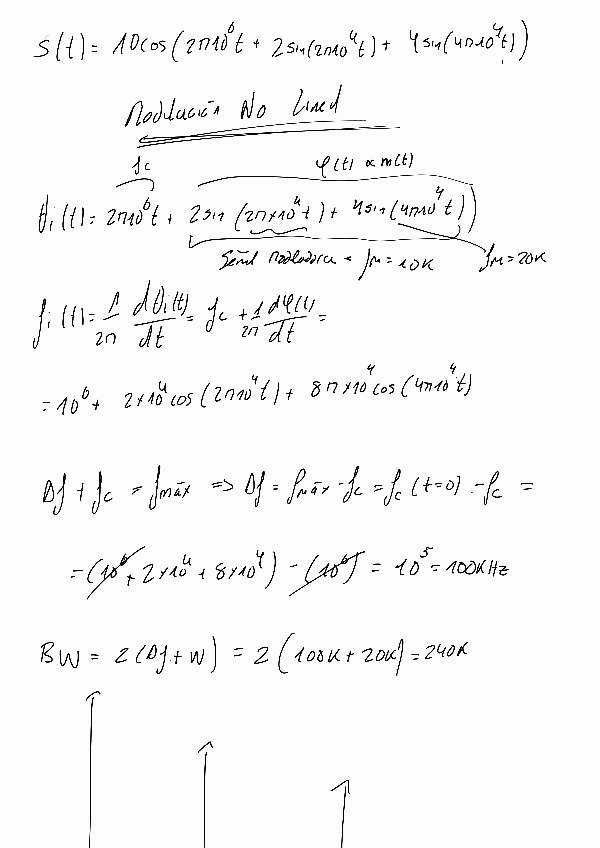 S(t) = 10cos(2π10⁶t + 2sin(2π10⁴t) + 4sin(4π10⁴t))
Modulación No Lineal
fc φ(t) ∝ m(t)
θi(t) = 2π10⁶t + 2sin(2π×10⁴t) + 4sin(4π10⁴t))
Señal moduladora = fm = 10K fm = 20K
fi(t) = 1/2π dθi(t)/dt = fc + 1/2π dφ(t)/dt =
= 10⁶ + 2×10⁴cos(2π10⁴t) + 8π×10⁴cos(4π10⁴t)
Δf + fc = fmáx => Δf = fmáx - fc = fc(t=0) - fc =
= (10⁶ + 2×10⁴ + 8×10⁴) - (10⁶) = 10⁵ = 100KHz
BW = 2(Δf + W) = 2(100K + 20K) = 240K